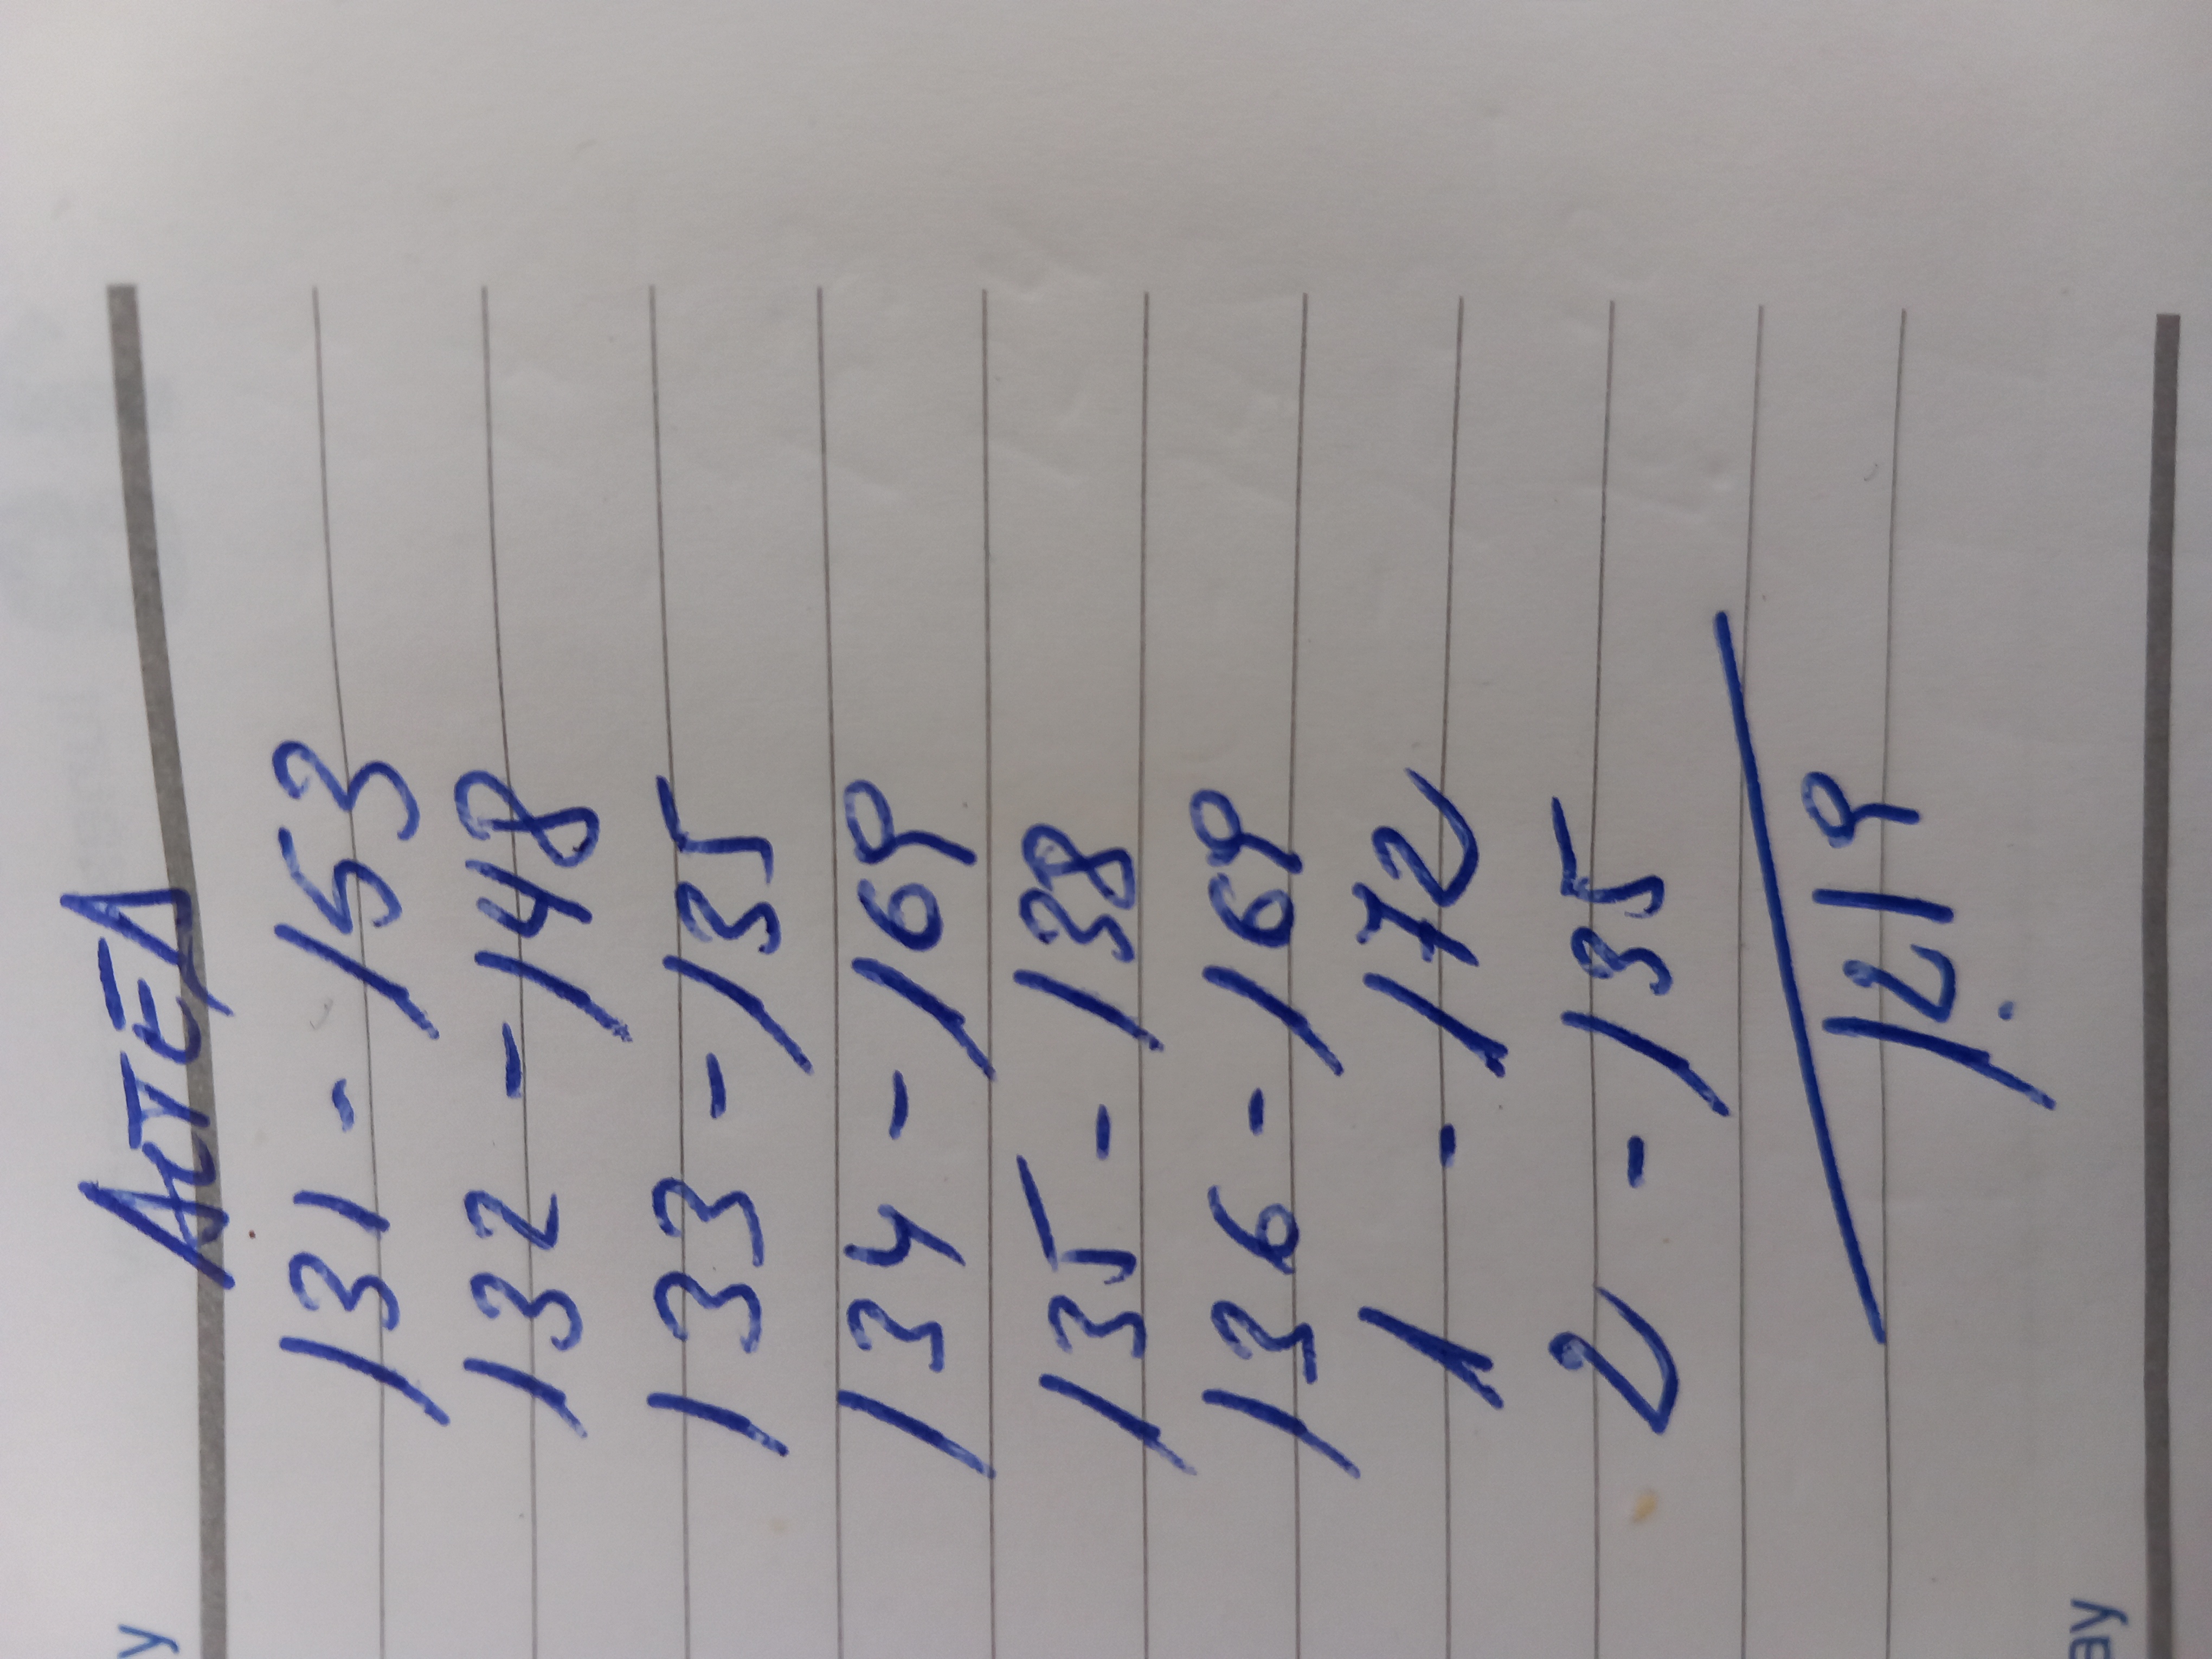 131 - 153
132 - 148
133 - 135
134 - 169
135 - 138
136 - 169
1 - 172
2 - 135
1219